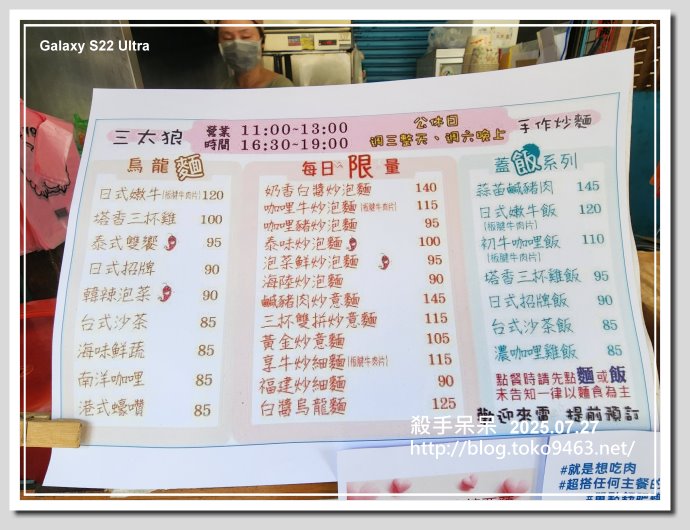 Galaxy S22 Ultra
三太狼
營業時間 11:00~13:00
16:30~19:00
公休日
週三整天、週六晚上
手作炒麵
烏龍麵
日式嫩牛(板腱牛肉片) 120
塔香三杯雞 100
泰式雙饗 95
日式招牌 90
韓辣泡菜 90
台式沙茶 85
海味鮮蔬 85
南洋咖哩 85
港式蠔饡 85
每日限量
奶香白醬炒泡麵 140
咖哩牛炒泡麵(板腱牛肉片) 115
咖哩豬炒泡麵 95
泰味炒泡麵 100
泡菜鮮炒泡麵 95
海陸炒泡麵 90
鹹豬肉炒意麵 145
三杯雙拼炒意麵 115
黃金炒意麵 105
享牛炒細麵(板腱牛肉片) 115
福建炒細麵 90
白醬烏龍麵 125
蓋飯系列
蒜苗鹹豬肉 145
日式嫩牛飯 120
(板腱牛肉片)
初牛咖哩飯 110
(板腱牛肉片)
塔香三杯雞飯 95
日式招牌飯 90
台式沙茶飯 85
濃咖哩雞飯 85
點餐時請先點麵或飯
未告知一律以麵食為主
歡迎來電 提前預訂
殺手呆呆 2025.07.27
http://blog.toko9463.net/
#就是想吃肉
#超搭任何主餐的